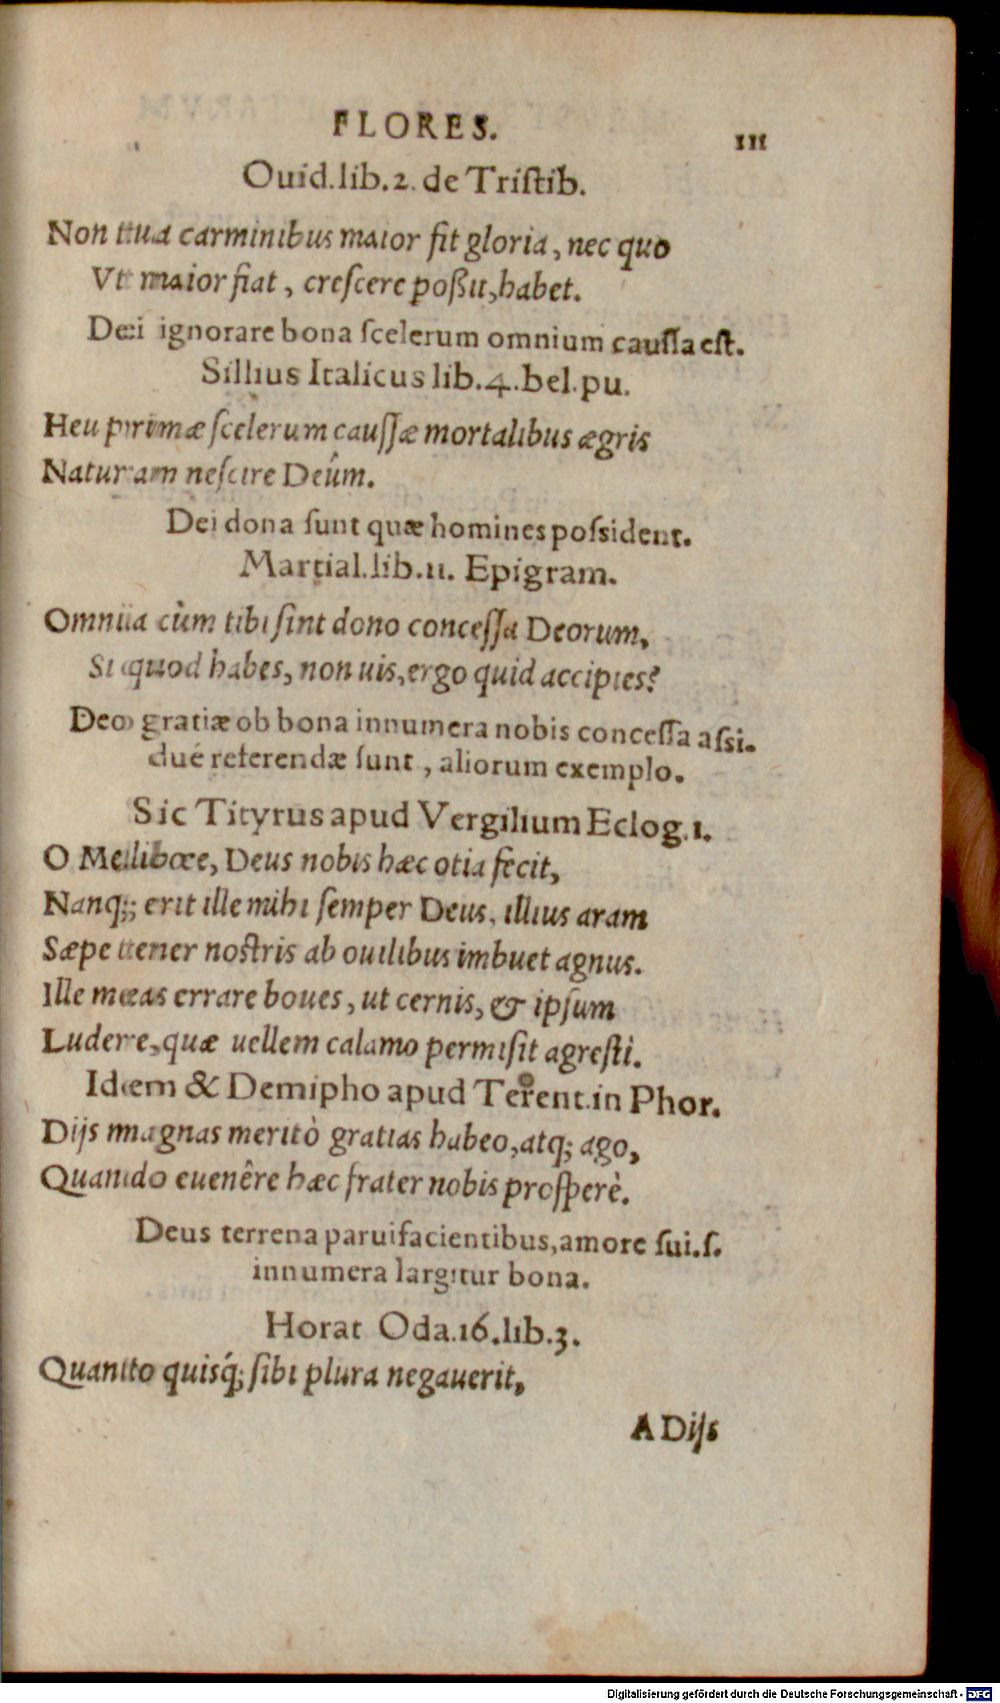 FLORES. 111
Ouid.lib.2. de Triſtib.
Non tua carminibus maior fit gloria, nec quo
Vt maior fiat, creſcere poßit, habet.
Dei ignorare bona ſcelerum omnium cauſſa eſt.
Sillius Italicus lib.4.bel.pu.
Heu primæ ſcelerum cauſſæ mortalibus ægris
Naturam neſcire Deûm.
Dei dona ſunt quæ homines poſsident.
Martial.lib.11. Epigram.
Omnia cùm tibi ſint dono conceſſa Deorum,
Si quod habes, non uis, ergo quid accipies?
Deo gratiæ ob bona innumera nobis conceſſa aſsi-
dué referendæ ſunt, aliorum exemplo.
Sic Tityrus apud Vergilium Eclog.1.
O Melibœe, Deus nobis hæc otia fecit,
Nanq; erit ille mihi ſemper Deus, illius aram
Sæpe tener noſtris ab ouilibus imbuet agnus.
Ille meas errare boues, ut cernis, & ipſum
Ludere, quæ uellem calamo permiſit agreſti.
Idem & Demipho apud Terent.in Phor.
Dijs magnas meritò gratias habeo, atq; ago,
Quando euenêre hæc frater nobis proſperè.
Deus terrena paruifacientibus, amore ſui.ſ.
innumera largitur bona.
Horat Oda.16.lib.3.
Quanto quisq́; ſibi plura negauerit,
A Dijs
Digitalisierung gefördert durch die Deutsche Forschungsgemeinschaft - DFG